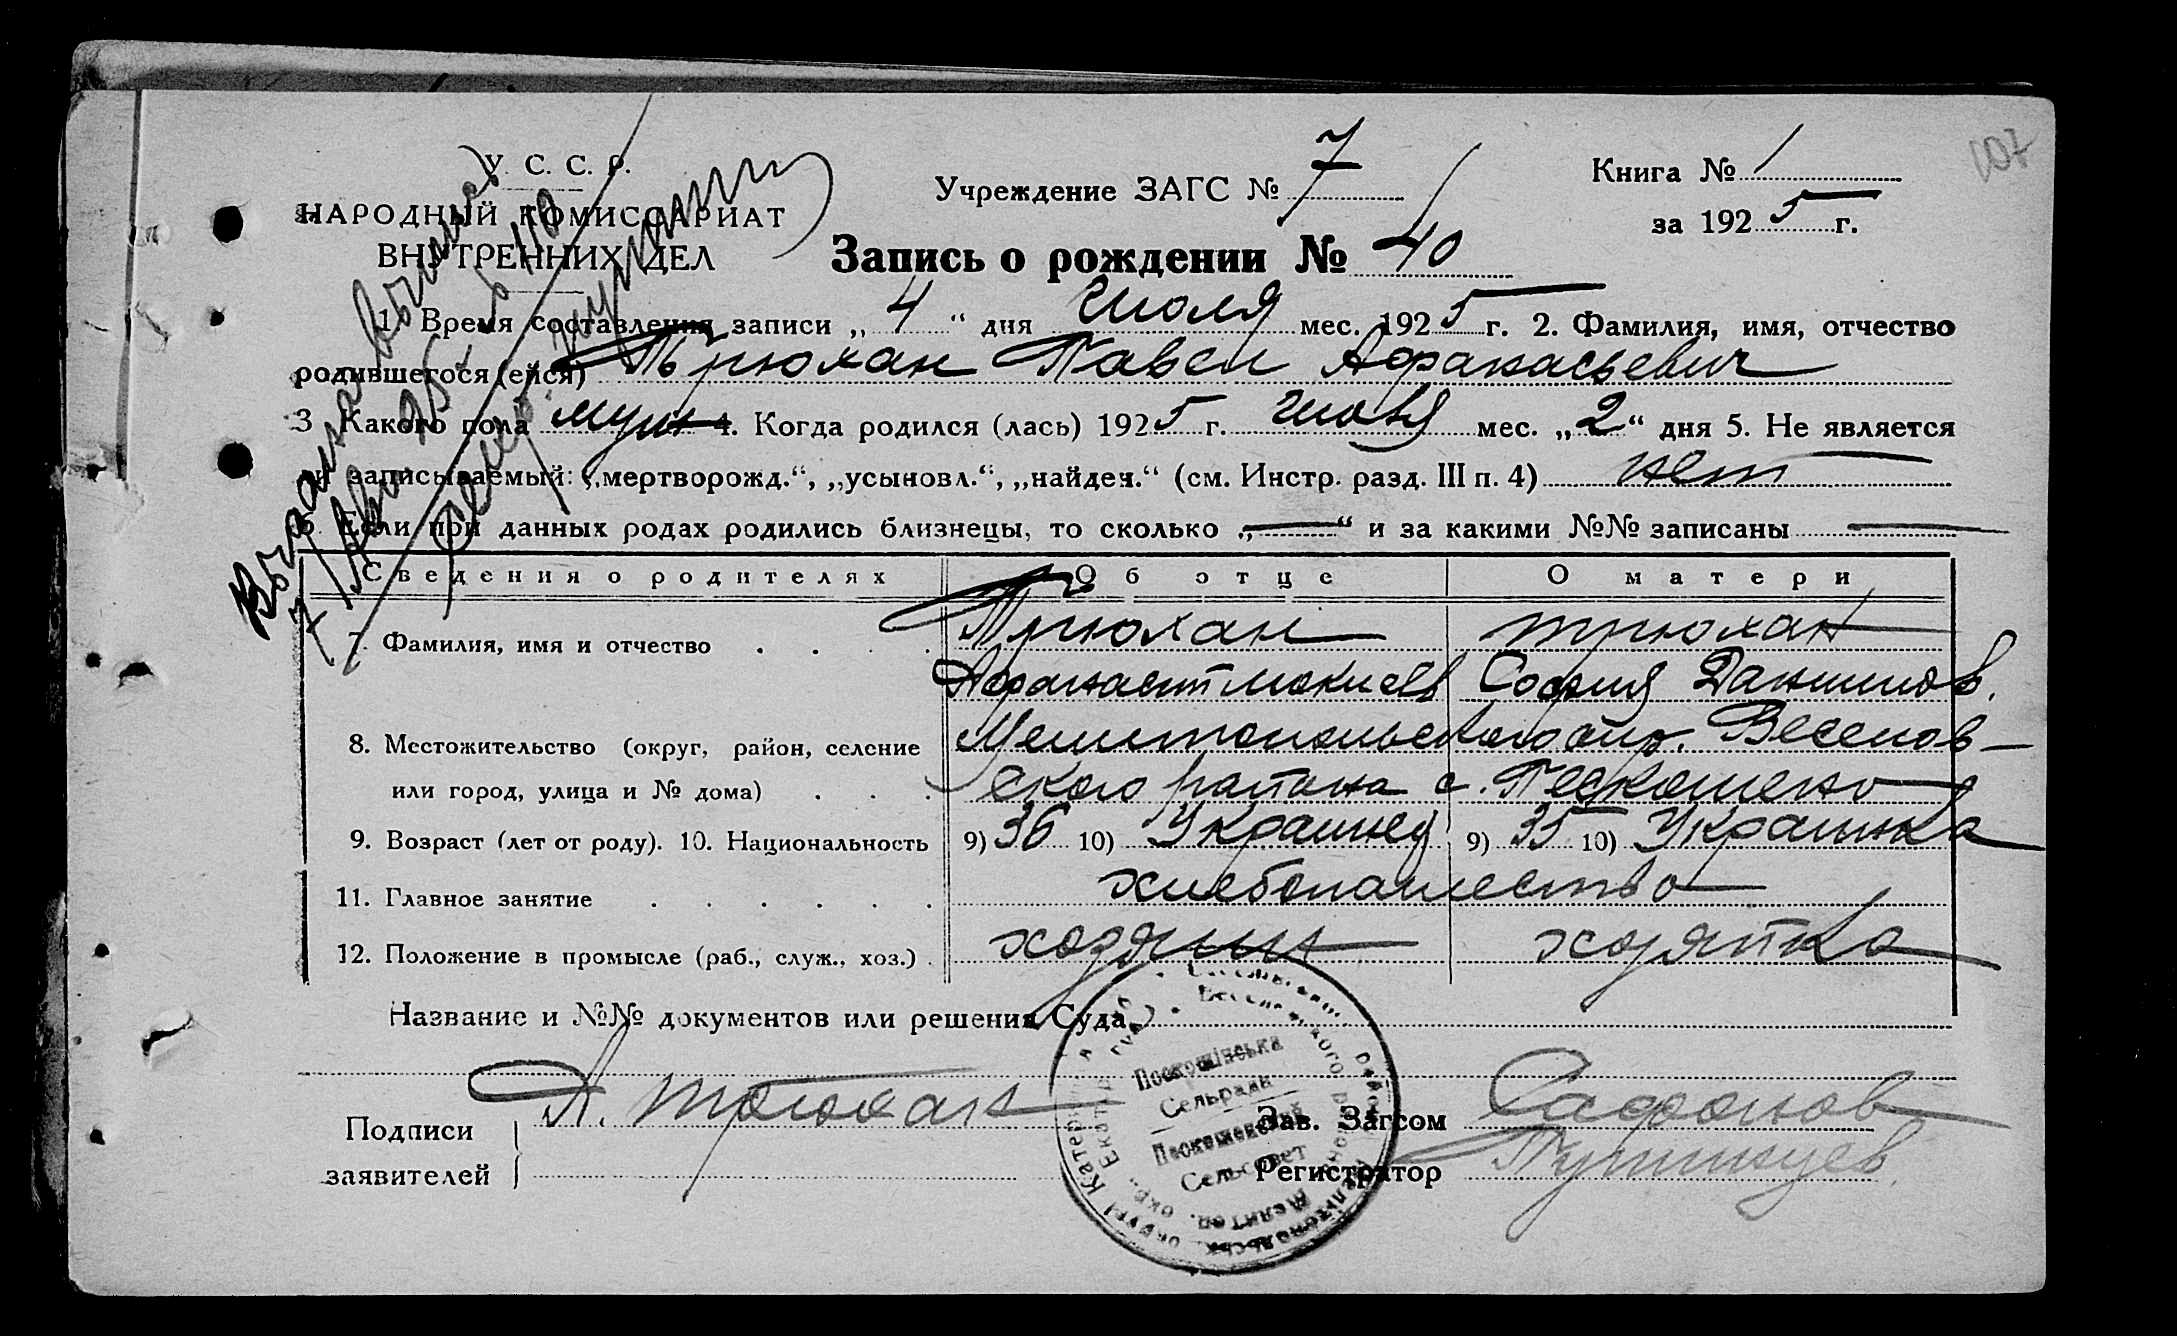 У. С. С. Р.
НАРОДНЫЙ КОМИССАРИАТ
ВНУТРЕННИХ ДЕЛ
Учреждение ЗАГС № 7
Книга № 1
за 1925 г.
107
Запись о рождении № 40
1. Время составления записи „4“ дня Июля мес. 1925 г. 2. Фамилия, имя, отчество
родившегося (ейся) Трюхан Павел Афанасьевич
3 Какого пола муж 4. Когда родился (лась) 1925 г. Июня мес. „2“ дня 5. Не является
ли записываемый: „мертворожд.“, „усыновл.“, „найден.“ (см. Инстр. разд. III п. 4) нет
6. Если при данных родах родились близнецы, то сколько „—“ и за какими №№ записаны —
Сведения о родителях Об отце О матери
7. Фамилия, имя и отчество . . . . Трюхан Трюхан
Афанасий Мокиев София Данилов.
8. Местожительство (округ, район, селение Мелитопольского окр. Веселов-
или город, улица и № дома) . . . ского района с. Пескошено
9. Возраст (лет от роду). 10. Национальность 9) 36 10) Украинец 9) 35 10) Украинка
11. Главное занятие . . . . . . хлебопашество
12. Положение в промысле (раб., служ., хоз.) . хозяин хозяйка
Название и №№ документов или решения Суда
Подписи
заявителей
А. Трюхан
Зав. Загсом Сафонов
Регистратор
Сельрада
Сельсовет
Выдана выпись